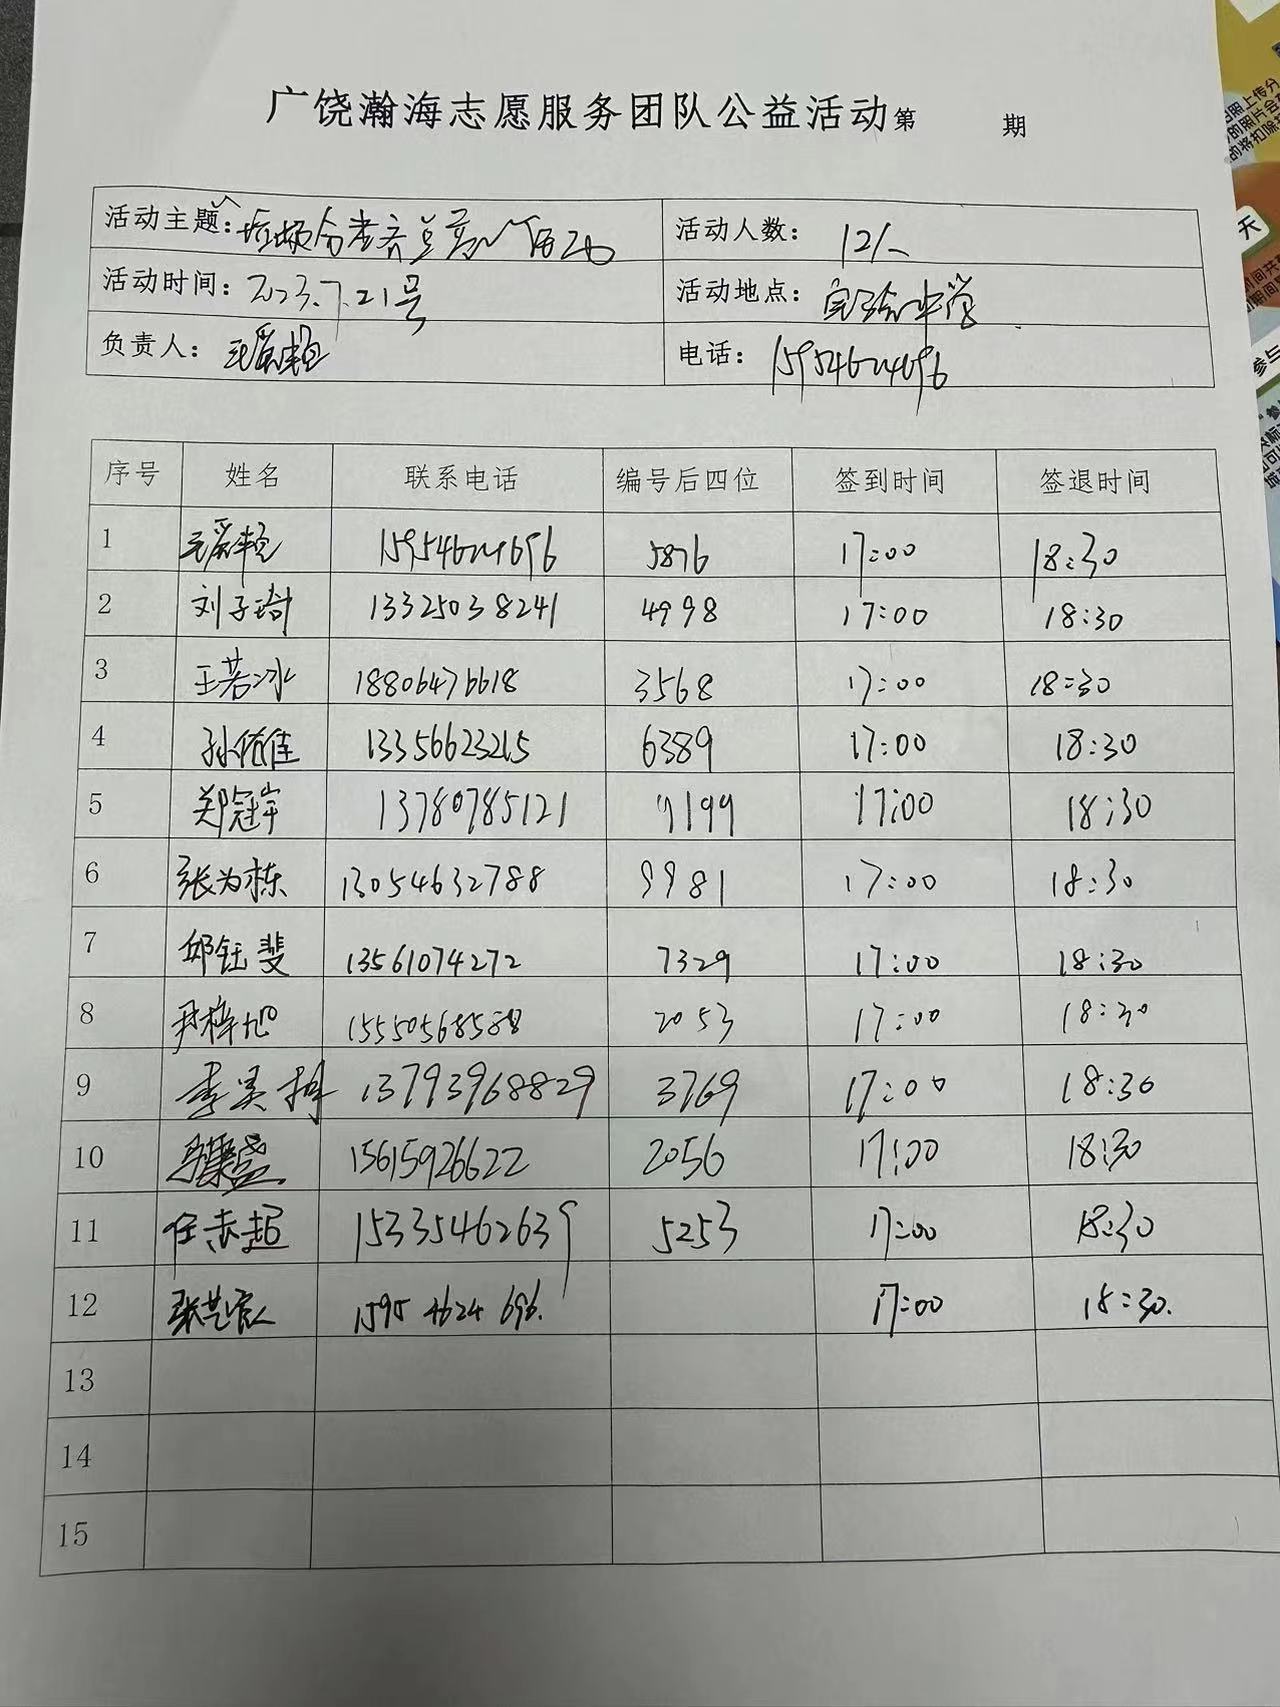 广饶瀚海志愿服务团队公益活动第 期
活动主题: 活动人数: 12人
活动时间: 2023.7.21号 活动地点: 实验中学
负责人: 电话: 15954624696
序号 姓名 联系电话 编号后四位 签到时间 签退时间
1 15954624696 5876 17:00 18:30
2 刘子琦 13325038241 4998 17:00 18:30
3 王若冰 18806476618 3568 17:00 18:30
4 孙依佳 13356623215 6389 17:00 18:30
5 郑冠宇 13780785121 7199 17:00 18:30
6 张为栋 13054632788 9981 17:00 18:30
7 邱钰斐 13561074272 7329 17:00 18:30
8 尹梓旭 15550568588 2053 17:00 18:30
9 13793968829 3769 17:00 18:30
10 15615926622 2056 17:00 18:30
11 15335462639 5253 17:00 18:30
12 15954624696. 17:00 18:30.
13
14
15
天
参与